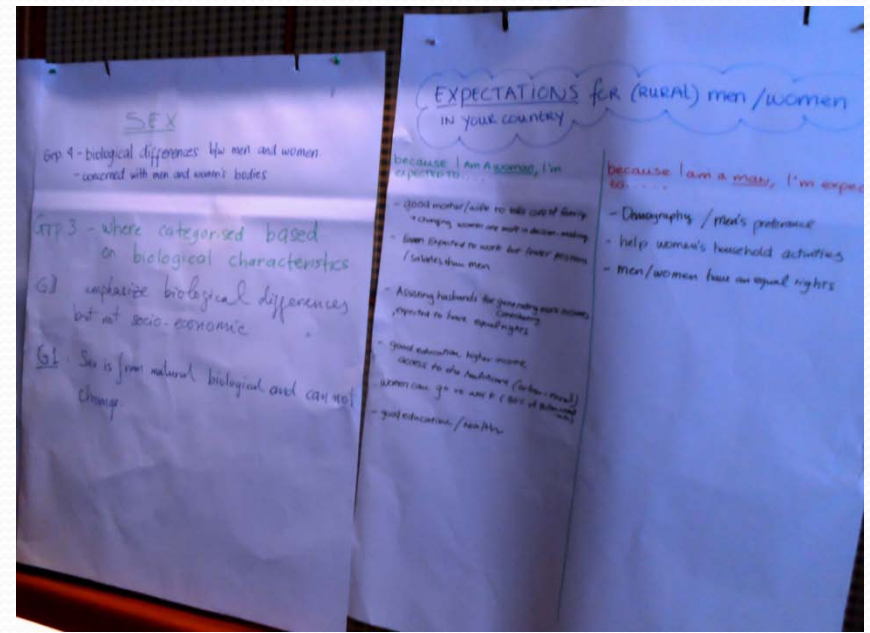 SEX
Grp 4 - biological differences b/w men and women.
- concerned with men and women's bodies
Grp 3 - where categorised based
on biological characteristics
emphasize biological differences
but not socio-economic
G1. Sex is from natural biological and can not
change.
EXPECTATIONS for (RURAL) men/women
IN YOUR COUNTRY
because I AM A woman, I'm
expected to....
- good mother/wife to take care of family
* changing, women are more in decision-making
- Even expected to work but fewer positions
/salaries than men
- Assisting husbands for generating more incomes,
contributing
expected to have equal rights
- good education, higher income
access to the healthcare (urban-rural)
- women can go to work
- good education/health
because I am a man, I'm expec
to.....
- Demography/men's preference
- help women's household activities
- men/women have an equal rights